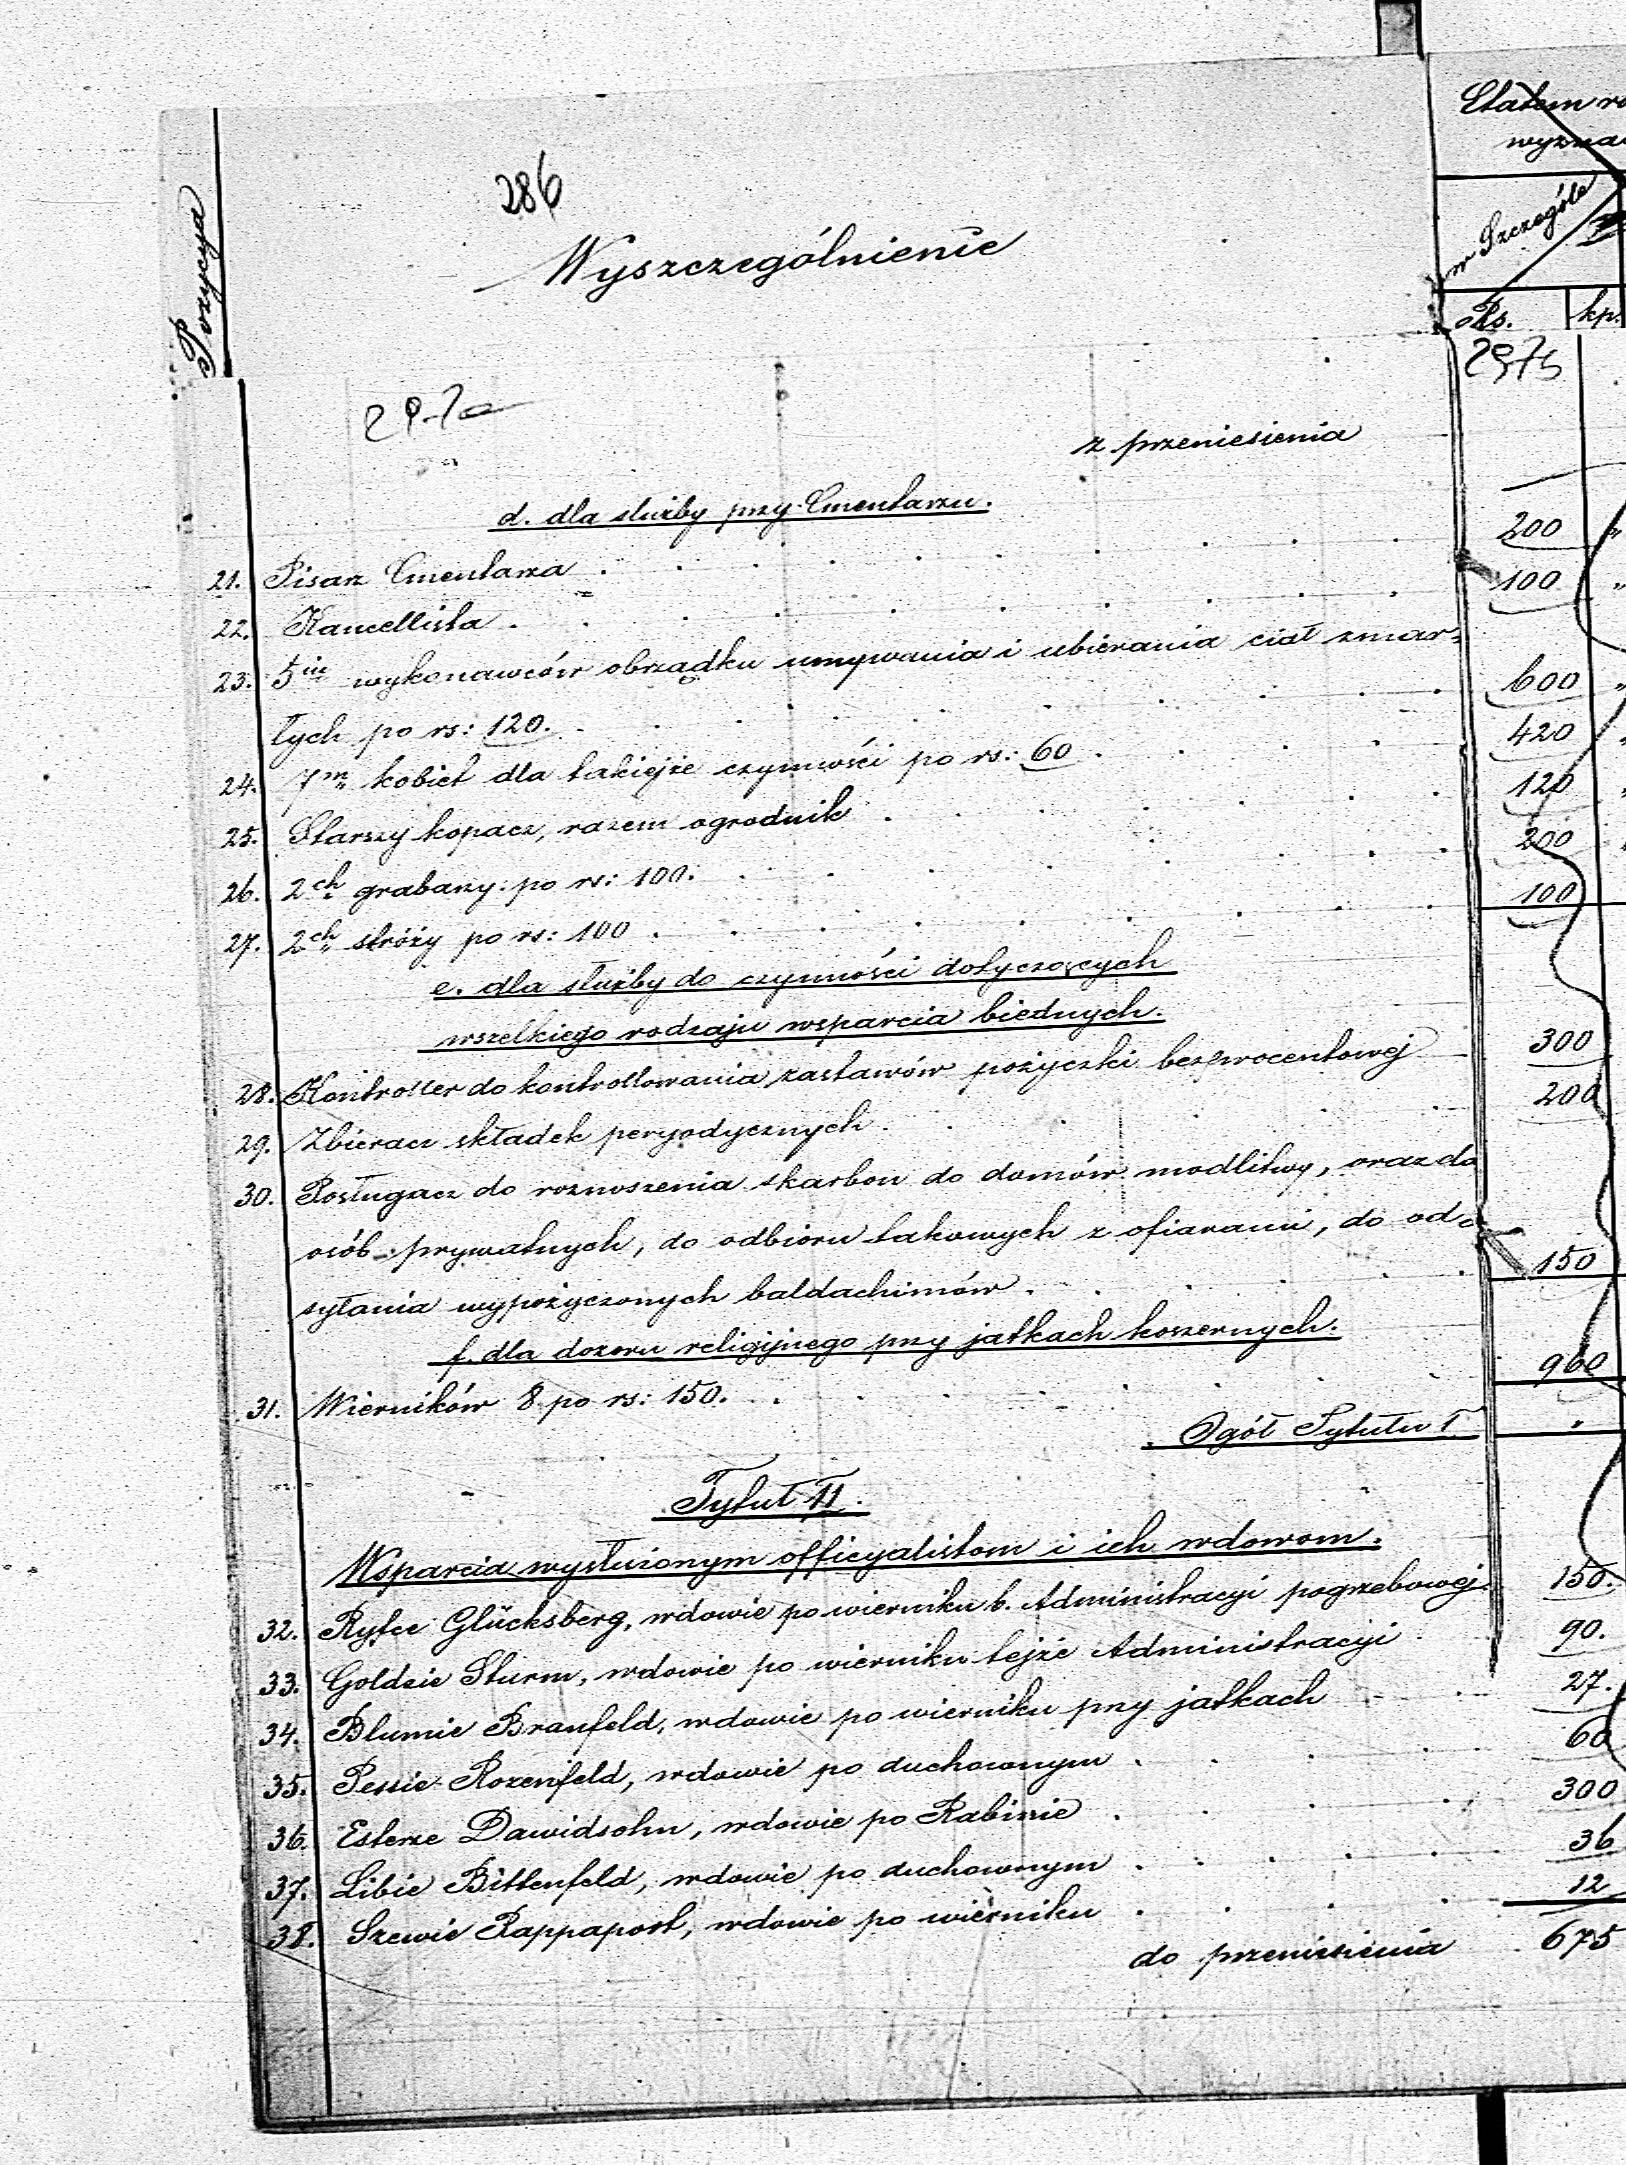 286
Etatem
Pozycya
Wyszczególnienie
w Szczególe
Rs. kp.
2975
z przeniesienia
d. dla służby przy Cmentarzu.
21. Pisarz Cmentarza . . . . . . . . 200 "
22. Kancellista . . . . . . . . 100 "
23. 5iu wykonawców obrządku umywania i ubierania ciał zmar=
łych po rs: 120. . . . . . . . 600 "
24. 7m kobiet dla takiejże czynności po rs: 60 . . . . 420
25. Starszy kopacz, razem ogrodnik . . . . . . 120
26. 2ch grabarzy po rs: 100. . . . . . . . 200
27. 2ch stróży po rs: 100 . . . . . . . . 100
e. dla służby do czynności dotyczących
wszelkiego rodzaju wsparcia biednych.
28. Kontroller do kontrollowania zastawów pożyczki bezprocentowej 300
29. Zbieracz składek peryodycznych . . . . . . 200
30. Posługacz do roznoszenia skarbon do domów modlitwy, oraz do
osób prywatnych, do odbioru takowych z ofiarami, do od=
syłania wypożyczonych baldachimów . . . . . . 150
f. dla dozoru religijnego przy jatkach koszernych.
31. Wierników 8 po rs: 150. . . . . . . . 960
Ogół Tytułu I "
Tytuł II.
Wsparcia wysłużonym officyalistom i ich wdowom.
32. Ryfce Glücksberg, wdowie po wierniku b. Administracyi pogrzebowej. 150.
33. Goldzie Sturm, wdowie po wierniku tejże Administracyi 90.
34. Blumie Branfeld, wdowie po wierniku przy jatkach 27.
35. Pessie Rozenfeld, wdowie po duchownym . . . . 60
36. Esterze Dawidsohn, wdowie po Rabinie . . . . 300
37. Libie Bittenfeld, wdowie po duchownym . . . . 36
38. Szewie Rappaport, wdowie po wierniku . . . . 12
do przeniesienia 675